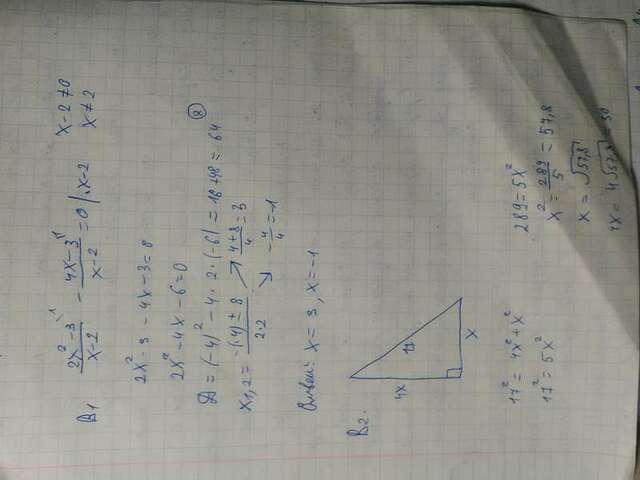 B1 (2x² - 3)/(x - 2) - (4x - 3)/(x - 2) = 0 | · x - 2    x - 2 ≠ 0
x ≠ 2
2x² - 3 - 4x - 3 = 0
2x² - 4x - 6 = 0
D = (-4)² - 4 · 2 · (-6) = 16 + 48 = 64 (8)
x1,2 = (-(4) ± 8)/(2·2) ↗ (4 + 8)/4 = 3
↘ -4/4 = -1
Ответ: x = 3, x = -1
B2.
4x
17
x
17² = 4x² + x²
17² = 5x²
289 = 5x²
x² = 289/5 = 57,8
x = √57,8
4x = 4√57,8 = 30